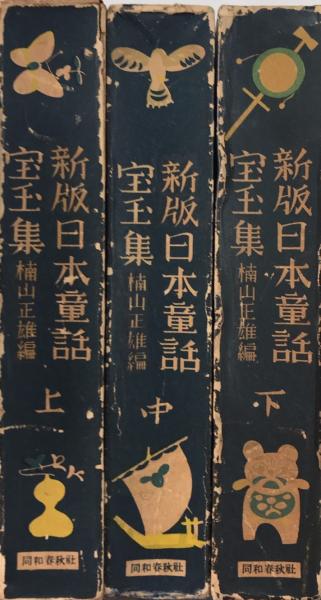 新版日本童話
宝玉集
楠山正雄編
上
同和春秋社
新版日本童話
宝玉集
楠山正雄編
中
同和春秋社
新版日本童話
宝玉集
楠山正雄編
下
同和春秋社